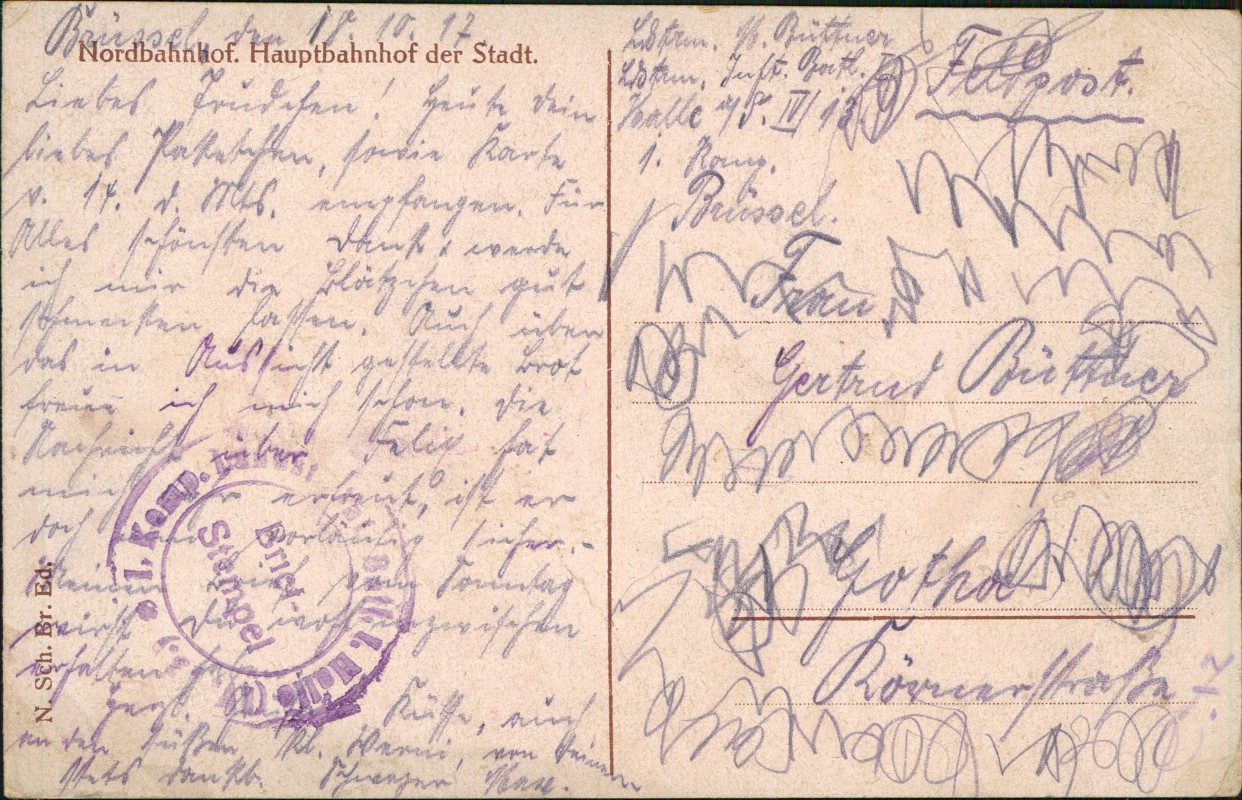 Brüssel, den 18.10.17.
Nordbahnhof. Hauptbahnhof der Stadt.
Liebes Trudchen! Heute dein
liebes Paketchen, sowie Karte
v. 14. d. Mts. empfangen. Für
Alles schönsten Dank, werde
ich mir die Plätzchen gut
schmecken lassen. Auch über
das in Aussicht gestellte Brot
freue ich mich schon. Die
Nachricht über Felix hat
mich erfreut, ist er
doch vorläufig sicher.-
Meinen Brief vom Sonntag
wirst Du inzwischen
erhalten
Herzl. Küsse, auch
an den süßen kl. Werni, von Deinem
stets dankb. Schwager Max.
N. Sch. Br. Ed.
1. Komp.
Brief-
Stempel
Batl. Halle
Ldstrm. M. Büttner
Ldstrm. Inft. Batl.
Halle a/S. IV/13
1. Komp.
Brüssel.
Feldpost.
Frau
Gertrud Büttner
Gotha
Körnerstraße